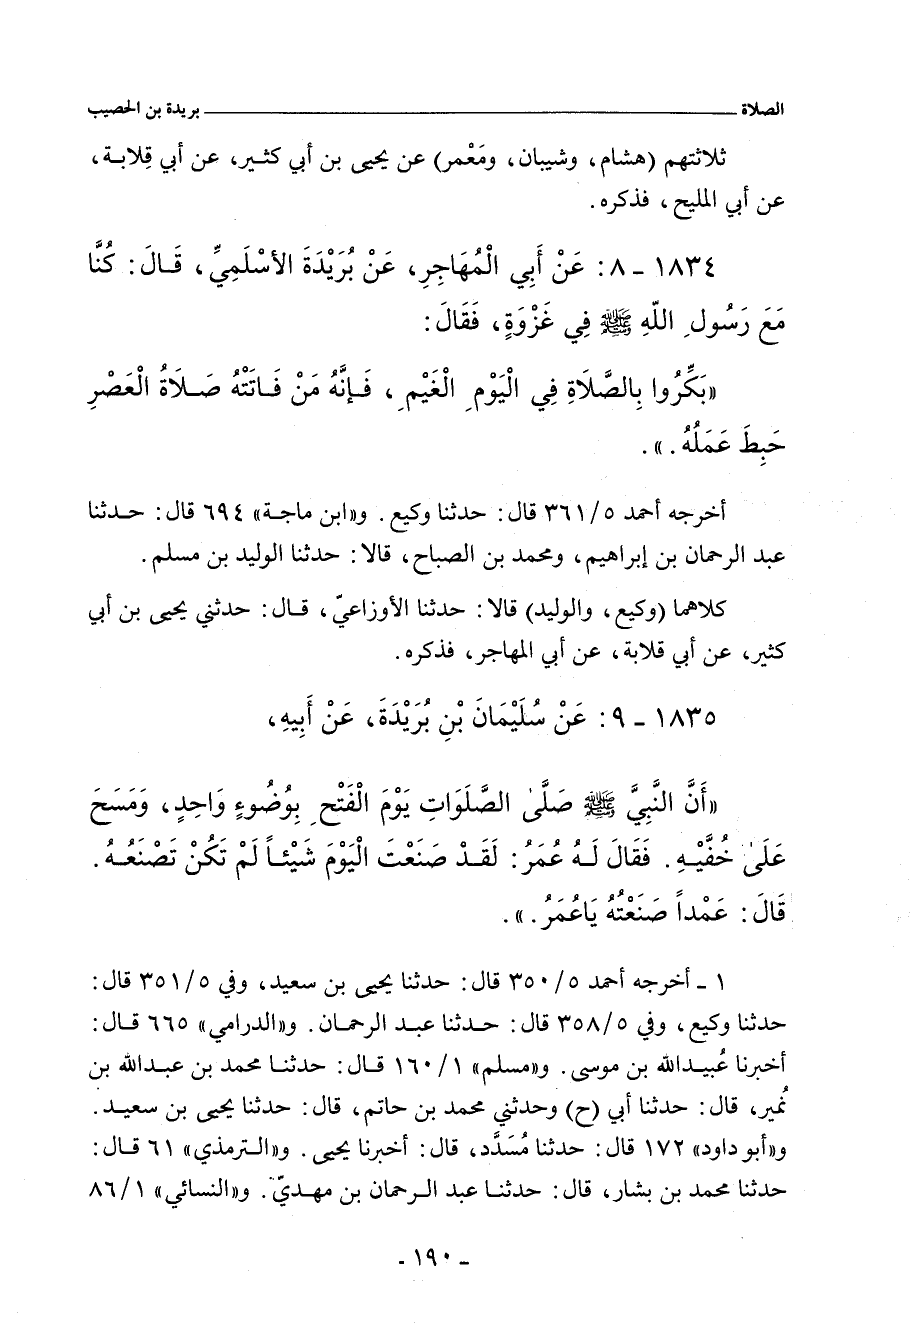 الصلاة ــــــــــــــــــــــــــــــــ بريدة بن الحصيب
ثلاثتهم (هشام، وشيبان، ومَعْمر) عن يحيى بن أبي كثير، عن أبي قِلابة،
عن أبي المليح، فذكره.
١٨٣٤ - ٨: عَنْ أَبِي الْمُهَاجِرِ، عَنْ بُرَيْدَةَ الأسْلَمِيِّ، قَالَ: كُنَّا
مَعَ رَسُولِ اللّهِ ﷺ فِي غَزْوَةٍ، فَقَالَ:
«بَكِّرُوا بِالصَّلَاةِ فِي الْيَوْمِ الْغَيْمِ، فَإِنَّهُ مَنْ فَاتَتْهُ صَلَاةُ الْعَصْرِ
حَبِطَ عَمَلُهُ.».
أخرجه أحمد ٣٦١/٥ قال: حدثنا وكيع. و«ابن ماجة» ٦٩٤ قال: حدثنا
عبد الرحمان بن إبراهيم، ومحمد بن الصباح، قالا: حدثنا الوليد بن مسلم.
كلاهما (وكيع، والوليد) قالا: حدثنا الأوزاعيّ، قال: حدثني يحيى بن أبي
كثير، عن أبي قلابة، عن أبي المهاجر، فذكره.
١٨٣٥ - ٩: عَنْ سُلَيْمَانَ بْنِ بُرَيْدَةَ، عَنْ أَبِيهِ،
«أَنَّ النَّبِيَّ ﷺ صَلَّىٰ الصَّلَوَاتِ يَوْمَ الْفَتْحِ بِوُضُوءٍ وَاحِدٍ، وَمَسَحَ
عَلَىٰ خُفَّيْهِ. فَقَالَ لَهُ عُمَرُ: لَقَدْ صَنَعْتَ الْيَوْمَ شَيْئاً لَمْ تَكُنْ تَصْنَعُهُ.
قَالَ: عَمْداً صَنَعْتُهُ يَاعُمَرُ.».
١ - أخرجه أحمد ٣٥٠/٥ قال: حدثنا يحيى بن سعيد، وفي ٣٥١/٥ قال:
حدثنا وكيع، وفي ٣٥٨/٥ قال: حدثنا عبد الرحمان. و«الدارمي» ٦٦٥ قال:
أخبرنا عُبيدالله بن موسى. و«مسلم» ١٦٠/١ قال: حدثنا محمد بن عبدالله بن
نُمير، قال: حدثنا أبي (ح) وحدثني محمد بن حاتم، قال: حدثنا يحيى بن سعيد.
و«أبو داود» ١٧٢ قال: حدثنا مُسَدَّد، قال: أخبرنا يحيى. و«الترمذي» ٦١ قال:
حدثنا محمد بن بشار، قال: حدثنا عبد الرحمان بن مهديّ. و«النسائي» ٨٦/١
- ١٩٠ -